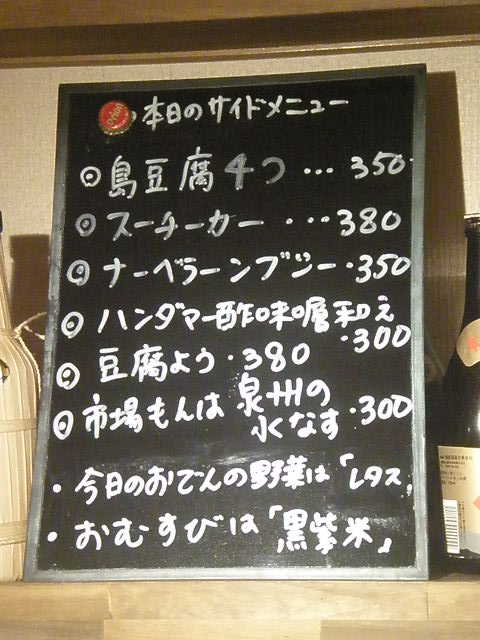 本日のサイドメニュー
◎島豆腐4つ…350
◎スーチーカー…380
◎ナーベラーンブシー・350
◎ハンダマー酢味噌和え・300
◎豆腐よう・380
◎市場もんは泉州の水なす・300
・今日のおでんの野菜は「レタス」
・おむすびは「黒紫米」